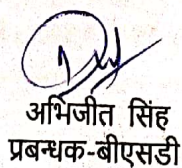 अभिजीत सिंह
प्रबन्धक-बीएसडी